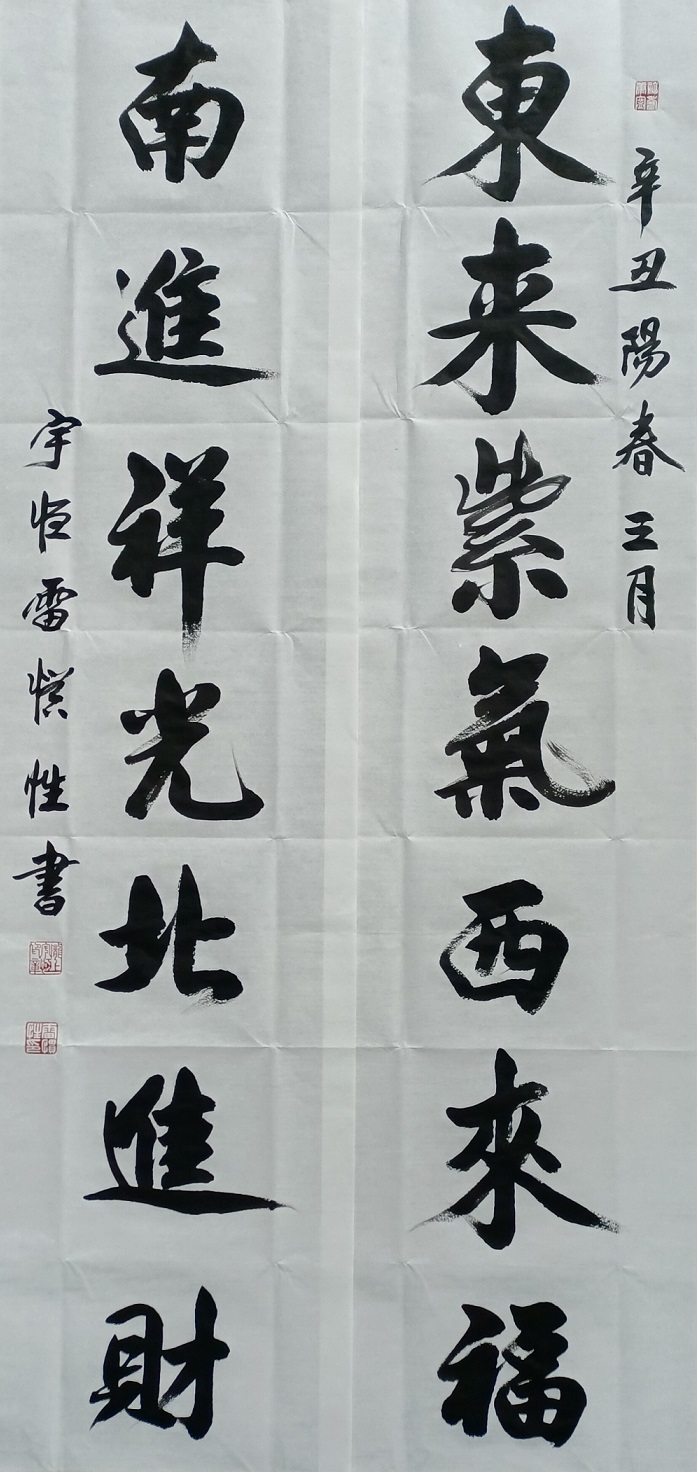 辛丑陽春三月
東来紫氣西來福
南進祥光北進財
宇恒雷愖性書